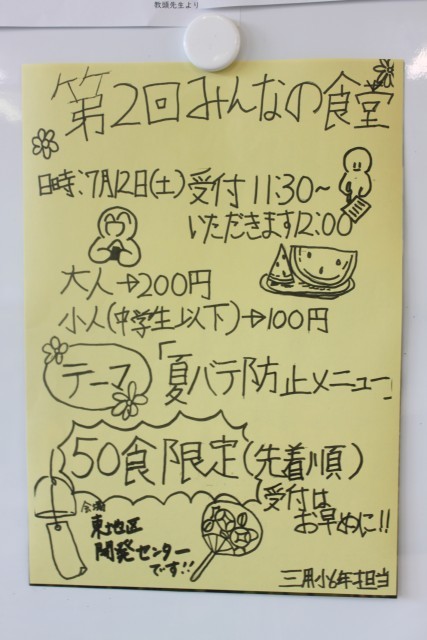 教頭先生より
第2回みんなの食堂
日時:7月12日(土)受付11:30~
いただきます12:00
大人→200円
小人(中学生以下)→100円
テーマ「夏バテ防止メニュー」
50食限定(先着順)
受付は
お早めに!!
会場
東地区
開発センター
です!!
三用小6年担当